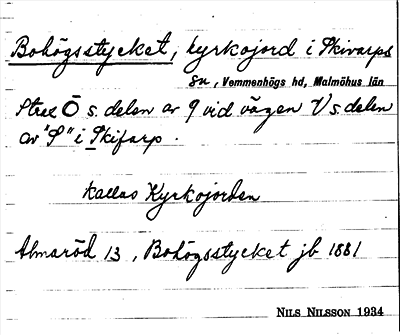 Bohögsstycket, kyrkojord i Skivarps
sn, Vemmenhögs hd, Malmöhus län
Strax Ö s. delen av 9 vid vägen V s. delen
av "S" i Skifarp.
kallas Kyrkojorden
Almaröd 13, Bohögsstycket jb 1881
NILS NILSSON 1934